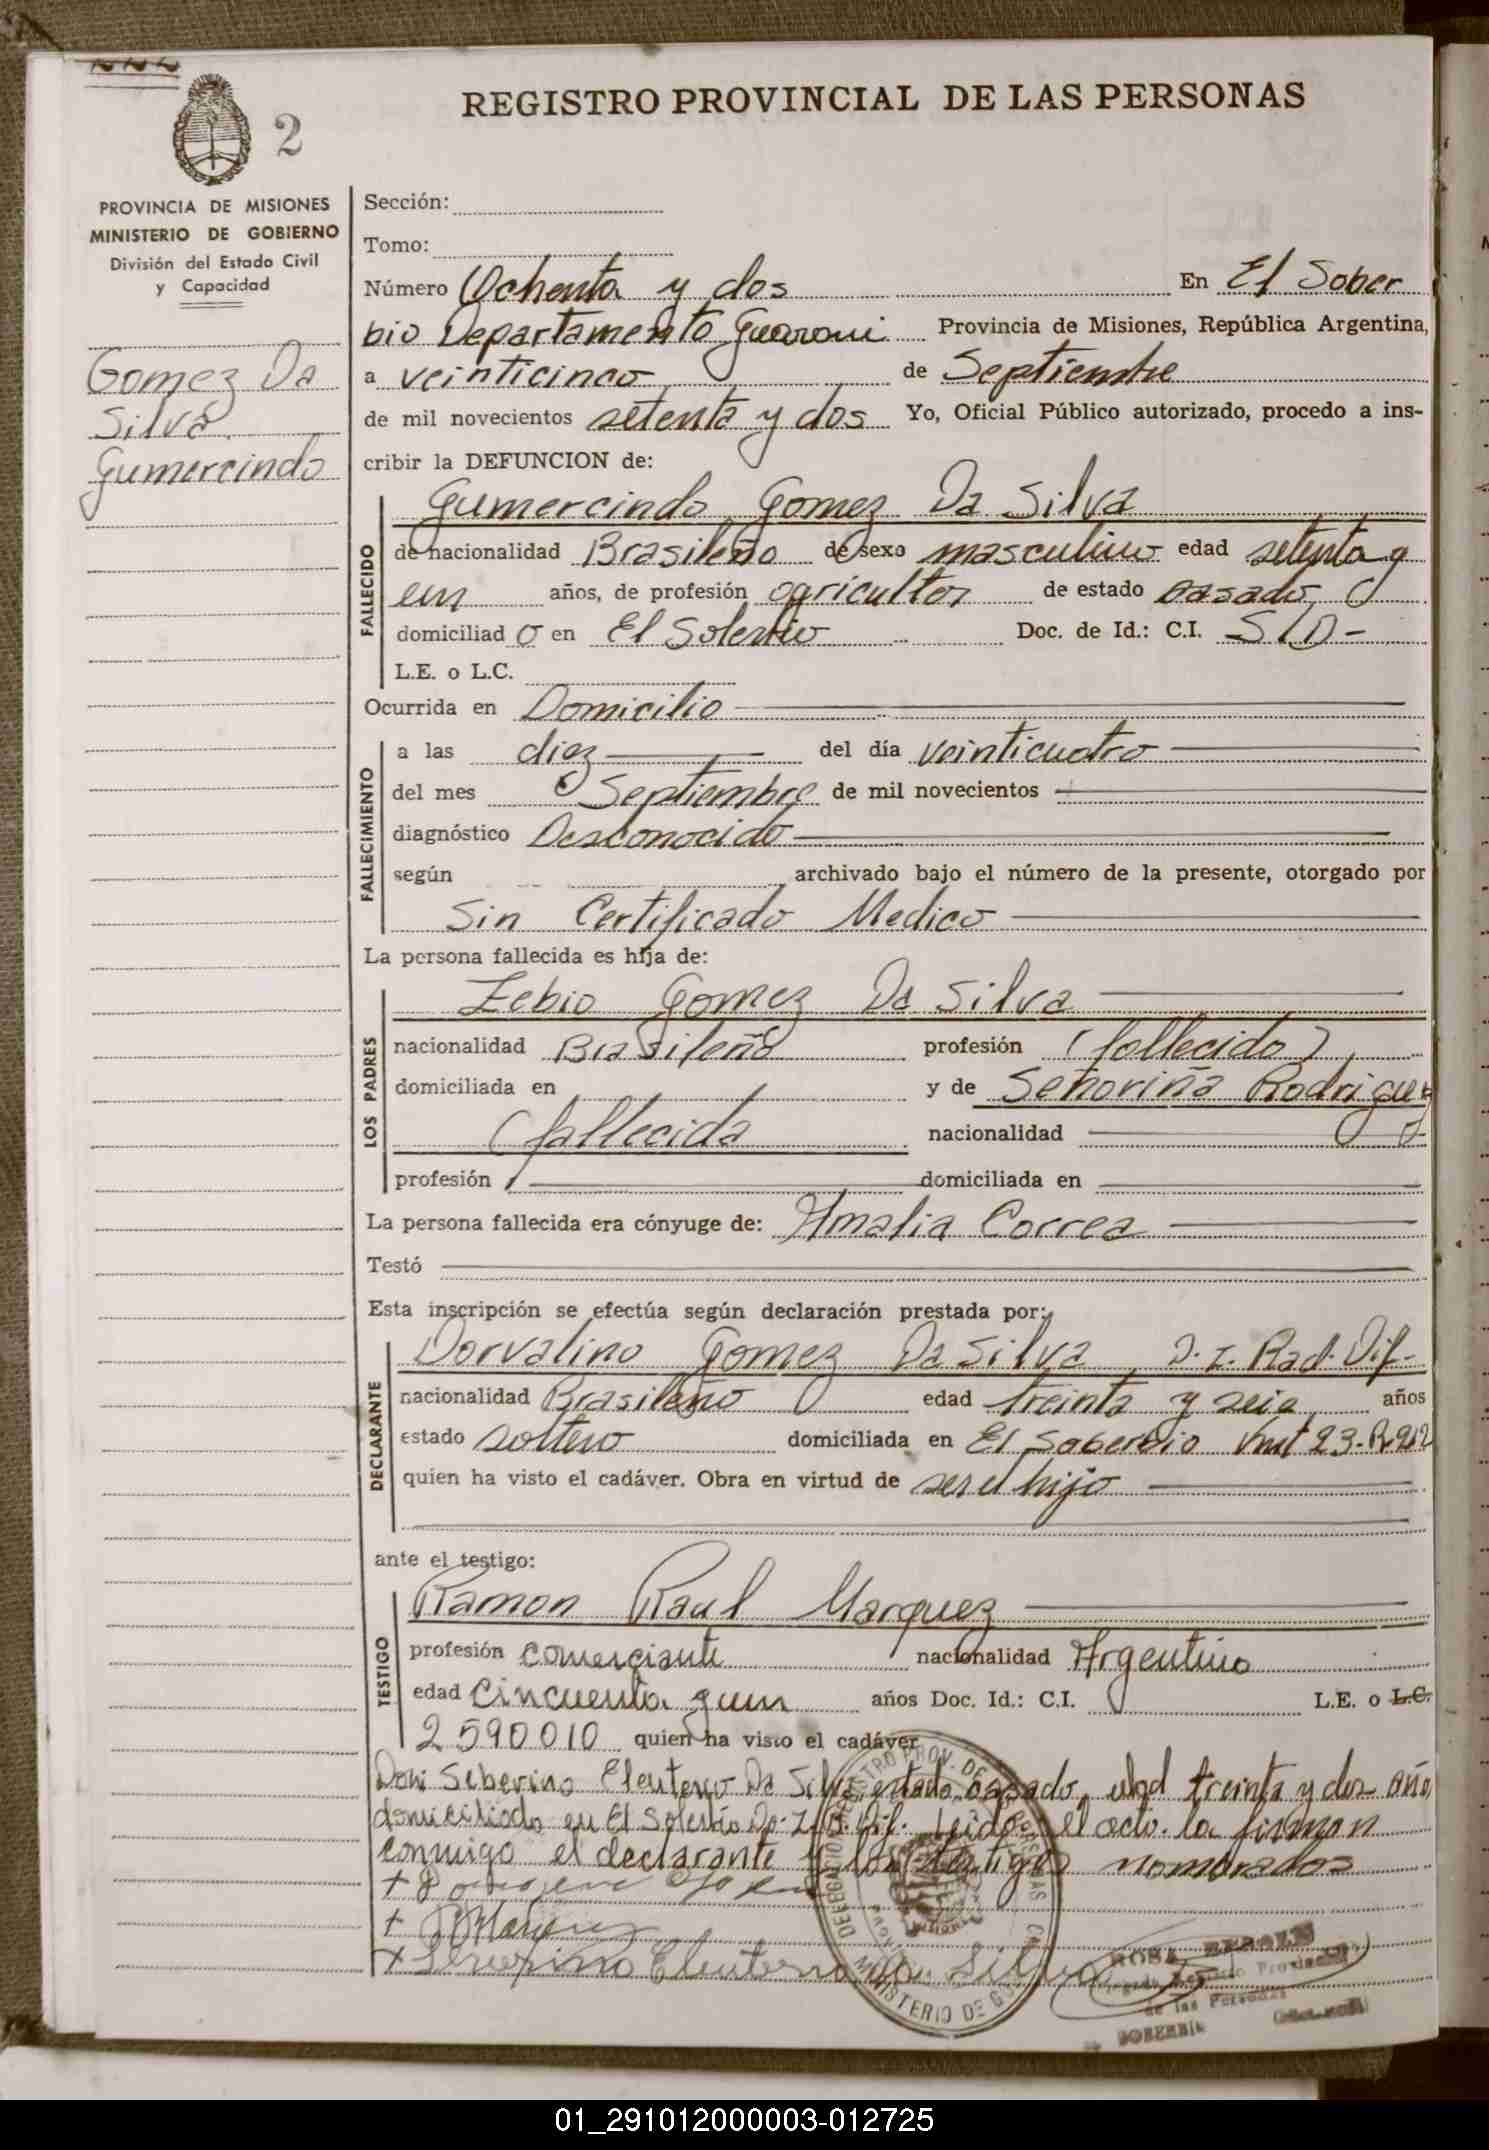 REGISTRO PROVINCIAL DE LAS PERSONAS
2
PROVINCIA DE MISIONES
MINISTERIO DE GOBIERNO
División del Estado Civil
y Capacidad
Gomez Da
Silva
Gumercindo
Sección:
Tomo:
Número Ochenta y dos En El Sober
bio Departamento Guarani Provincia de Misiones, República Argentina,
a veinticinco de Septiembre
de mil novecientos setenta y dos Yo, Oficial Público autorizado, procedo a ins-
cribir la DEFUNCION de:
FALLECIDO
Gumercindo Gomez Da Silva
de nacionalidad Brasileño de sexo masculino edad setenta y
un años, de profesión agricultor de estado casado
domiciliad o en El Soberbio Doc. de Id.: C.I. S/D-
L.E. o L.C.
Ocurrida en Domicilio
FALLECIMIENTO
a las diez del día veinticuatro
del mes Septiembre de mil novecientos
diagnóstico Desconocido
según archivado bajo el número de la presente, otorgado por
Sin Certificado Medico
La persona fallecida es hija de:
LOS PADRES
Zebio Gomez Da Silva
nacionalidad Brasileño profesión (fallecido)
domiciliada en y de Señoriña Rodriguez
(fallecida nacionalidad
profesión domiciliada en
La persona fallecida era cónyuge de: Amalia Correa
Testó
Esta inscripción se efectúa según declaración prestada por:
DECLARANTE
Dorvalino Gomez Da Silva D. I. Rad. Dif-
nacionalidad Brasileño edad treinta y seis años
estado soltero domiciliada en El Soberbio 23-
quien ha visto el cadáver. Obra en virtud de ser el hijo
ante el testigo:
TESTIGO
Ramon Raul Marquez
profesión comerciante nacionalidad Argentino
edad cincuenta y un años Doc. Id.: C.I. L.E. o L.C.
2590010 quien ha visto el cadáver
Don Seberino Eleuterio Da Silva estado casado, edad treinta y dos año
domiciliado en El Soberbio Dif. Leido el acto. la firman
conmigo el declarante y los testigos nombrados
Eleuterio da Silva
MINISTERIO DE
ROSA
de las Personas
SOBERBIO
01_291012000003-012725